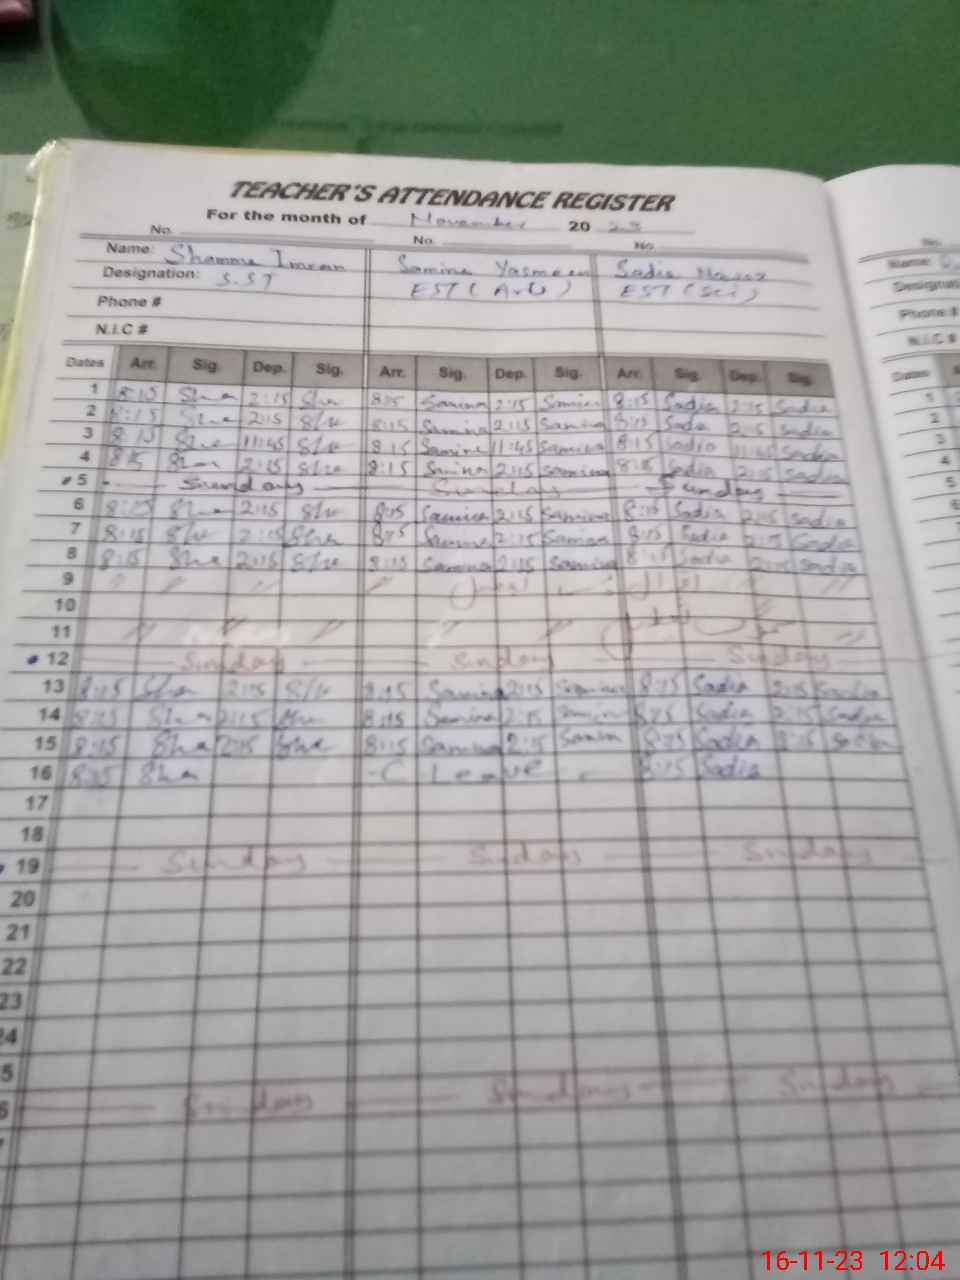 TEACHER'S ATTENDANCE REGISTER
For the month of November 20 23
No. No. No.
Name: Shamma Imran Samina Yasmeen Sadia Nawaz
Designation: S.ST EST (Arts) EST (Sci)
Phone #
N.I.C #
Dates Arr. Sig. Dep. Sig. Arr. Sig. Dep. Sig. Arr. Sig. Dep. Sig.
1 8:15 Sha 2:15 Sha 8:15 Samina 2:15 Samina 8:15 Sadia 2:15 Sadia
2 8:15 Sha 2:15 Sha 8:15 Samina 2:15 Samina 8:15 Sadia 2:15 Sadia
3 8:15 Sha 11:45 Sha 8:15 Samina 11:45 Samina 8:15 Sadia 11:45 Sadia
4 8:15 Sha 2:15 Sha 8:15 Samina 2:15 Samina 8:15 Sadia 2:15 Sadia
5 Sunday Sunday Sunday
6 8:15 Sha 2:15 Sha 8:15 Samina 2:15 Samina 8:15 Sadia 2:15 Sadia
7 8:15 Sha 2:15 Sha 8:15 Samina 2:15 Samina 8:15 Sadia 2:15 Sadia
8 8:15 Sha 2:15 Sha 8:15 Samina 2:15 Samina 8:15 Sadia 2:15 Sadia
9
10
11
12 Sunday Sunday Sunday
13 8:15 Sha 2:15 Sha 8:15 Samina 2:15 Samina 8:15 Sadia 2:15 Sadia
14 8:15 Sha 2:15 Sha 8:15 Samina 2:15 Samina 8:15 Sadia 2:15 Sadia
15 8:15 Sha 2:15 Sha 8:15 Samina 2:15 Samina 8:15 Sadia 2:15 Sadia
16 8:15 Sha -C Leave 8:15 Sadia
17
18
19 Sunday Sunday Sunday
20
21
22
23
24
5
6 Sunday Sunday Sunday
Name:
Phone #
N.I.C #
Dates
1
2
3
4
5
6
16-11-23 12:04